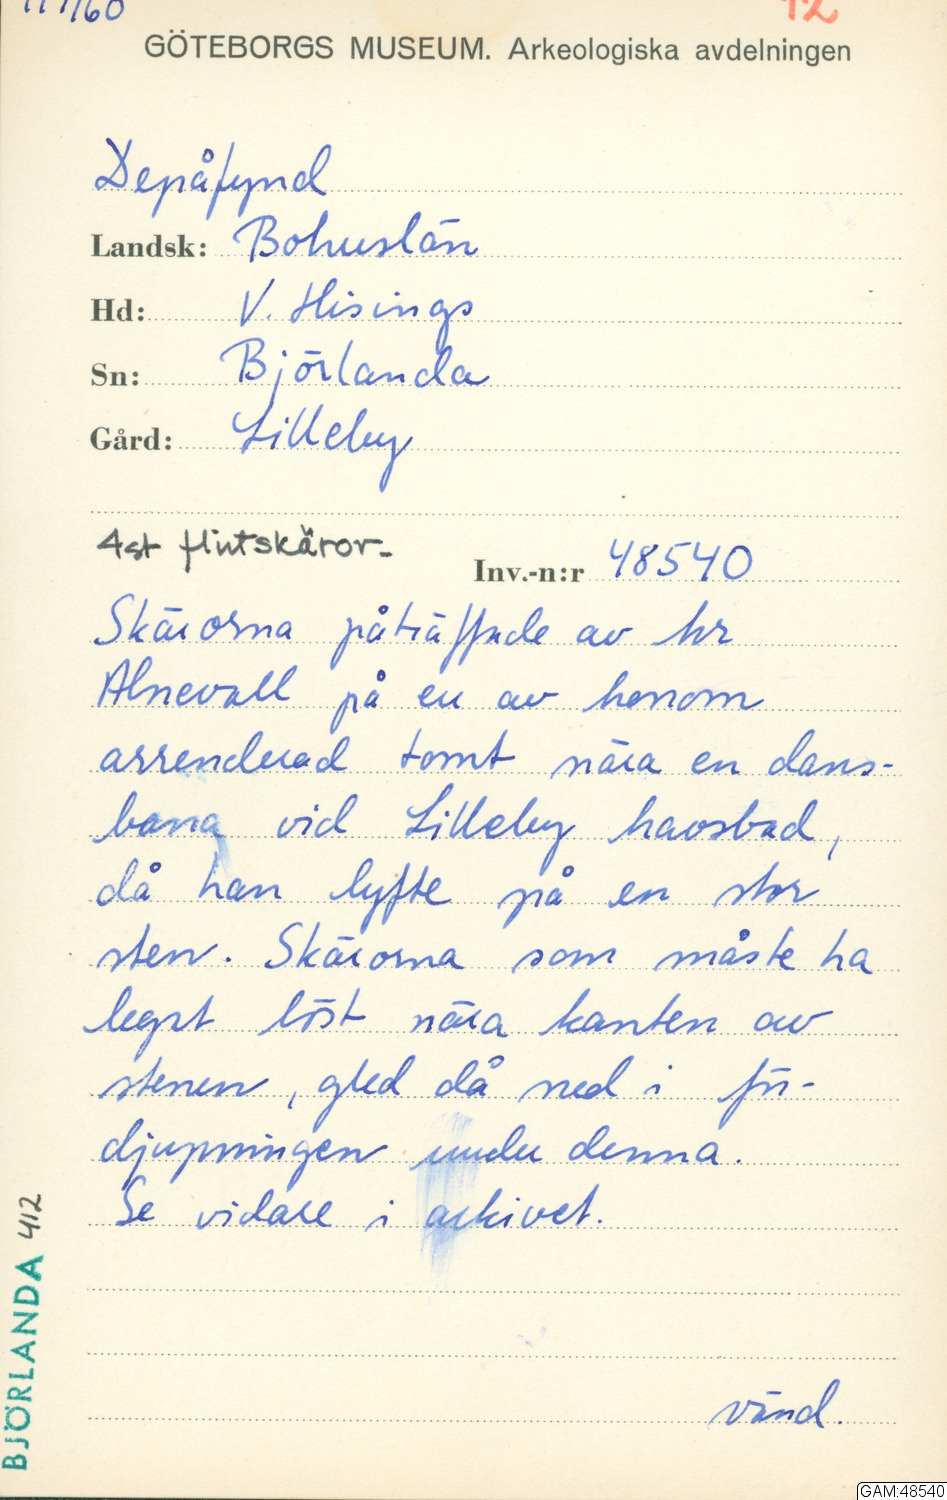 12
GÖTEBORGS MUSEUM. Arkeologiska avdelningen
Depåfynd
Landsk: Bohuslän
Hd: V. Hisings
Sn: Björlanda
Gård: Lilleby
4st flintskäror-
Inv.-n:r 48540
Skärorna påträffade av hr
Alnevall på en av honom
arrenderad tomt nära en dans-
bana vid Lilleby havsbad,
då han lyfte på en stor
sten. Skärorna som måste ha
legat löst nära kanten av
stenen, gled då ned i för-
djupningen under denna.
Se vidare i arkivet.
vänd.
BJÖRLANDA 412
GAM:48540